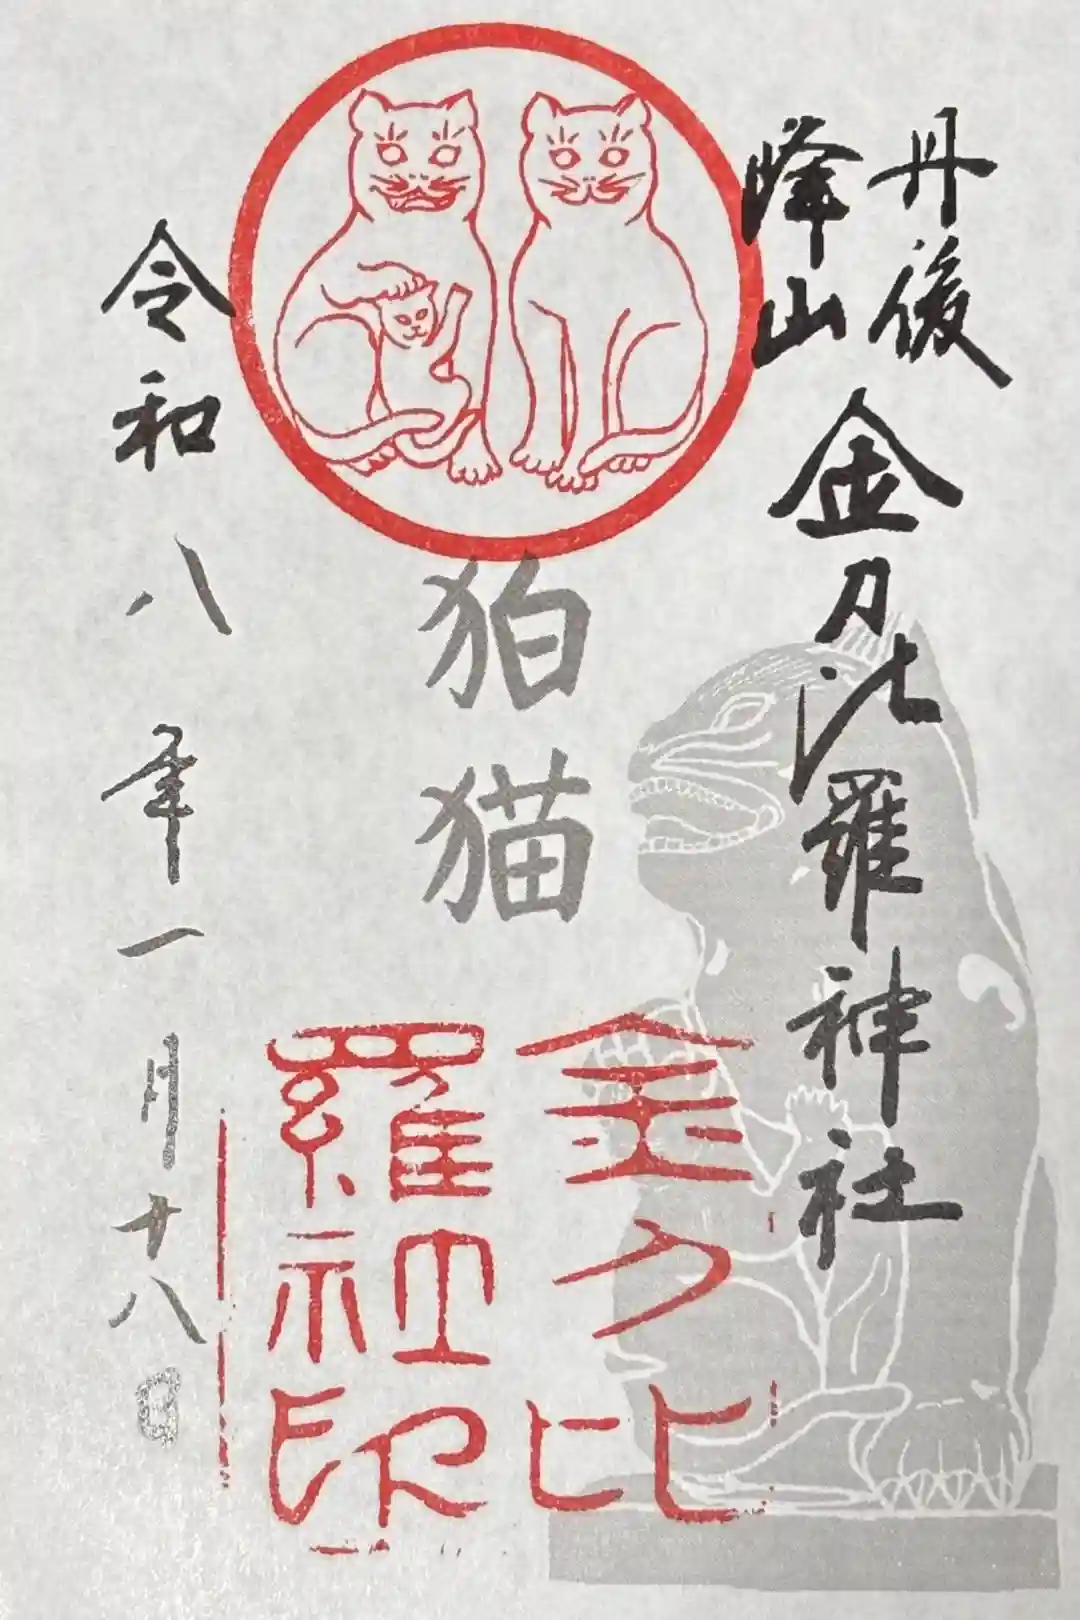 丹後
峰山
金刀比羅神社
狛猫
令和八年一月十八日
金刀比
羅社
神印